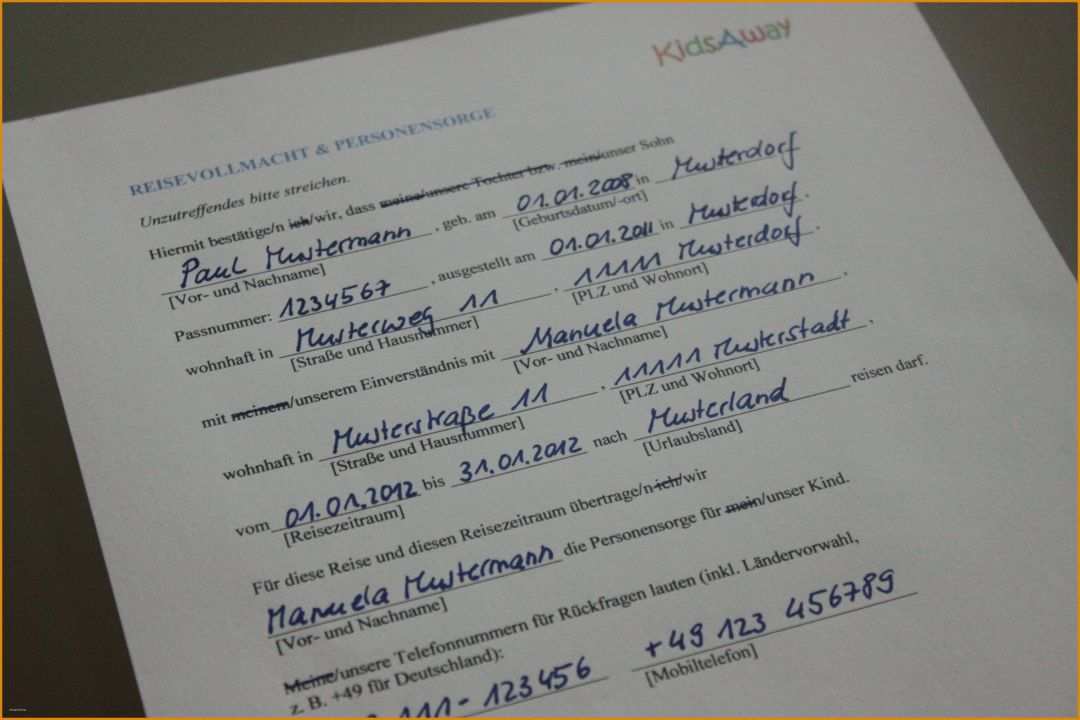 KidsAway
REISEVOLLMACHT & PERSONENSORGE
Unzutreffendes bitte streichen.
Hiermit bestätige/n ich/wir, dass meine/unsere Tochter bzw. mein/unser Sohn
Paul Mustermann , geb. am 01.01.2008 in Musterdorf
[Vor- und Nachname] [Geburtsdatum/-ort]
Passnummer: 1234567 , ausgestellt am 01.01.2011 in Musterdorf .
wohnhaft in Musterweg 11 , 11111 Musterdorf .
[Straße und Hausnummer] [PLZ und Wohnort]
mit meinem/unserem Einverständnis mit Manuela Mustermann .
[Vor- und Nachname]
wohnhaft in Musterstraße 11 , 11111 Musterstadt .
[Straße und Hausnummer] [PLZ und Wohnort]
vom 01.01.2012 bis 31.01.2012 nach Musterland reisen darf.
[Reisezeitraum] [Urlaubsland]
Für diese Reise und diesen Reisezeitraum übertrage/n ich/wir
Manuela Mustermann die Personensorge für mein/unser Kind.
[Vor- und Nachname]
Meine/unsere Telefonnummern für Rückfragen lauten (inkl. Ländervorwahl,
z. B. +49 für Deutschland):
111-123456 +49 123 456789
[Mobiltelefon]